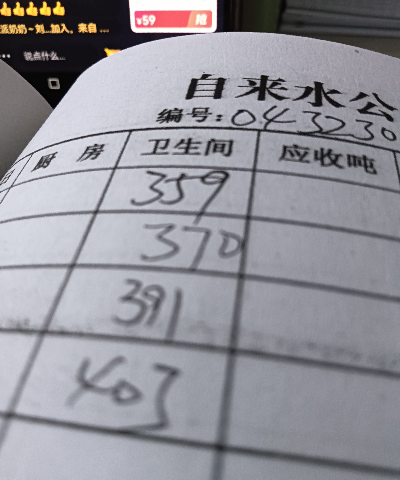 👍👍👍👍👍
派奶奶~刘...加入。来自...
说点什么...
¥59 抢
自来水公
编号:043230
厨房 卫生间 应收吨
359
370
391
403